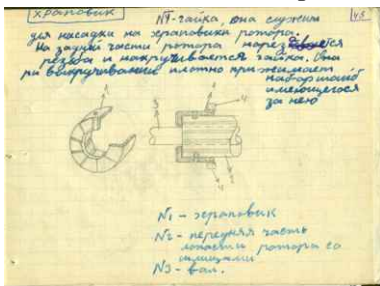 Храповик
N4-гайка, она служит
для насадки на храповика ротора.
На задней части ротора нарезается
резьба и накручивается гайка. Она
при выкручивании плотно прижимает
набор шайб
имеющегося
за нею
1
3
1
4
2
N1 - храповик
N2 - передняя часть
лопасти ротора со
шлицами
N3 - вал.